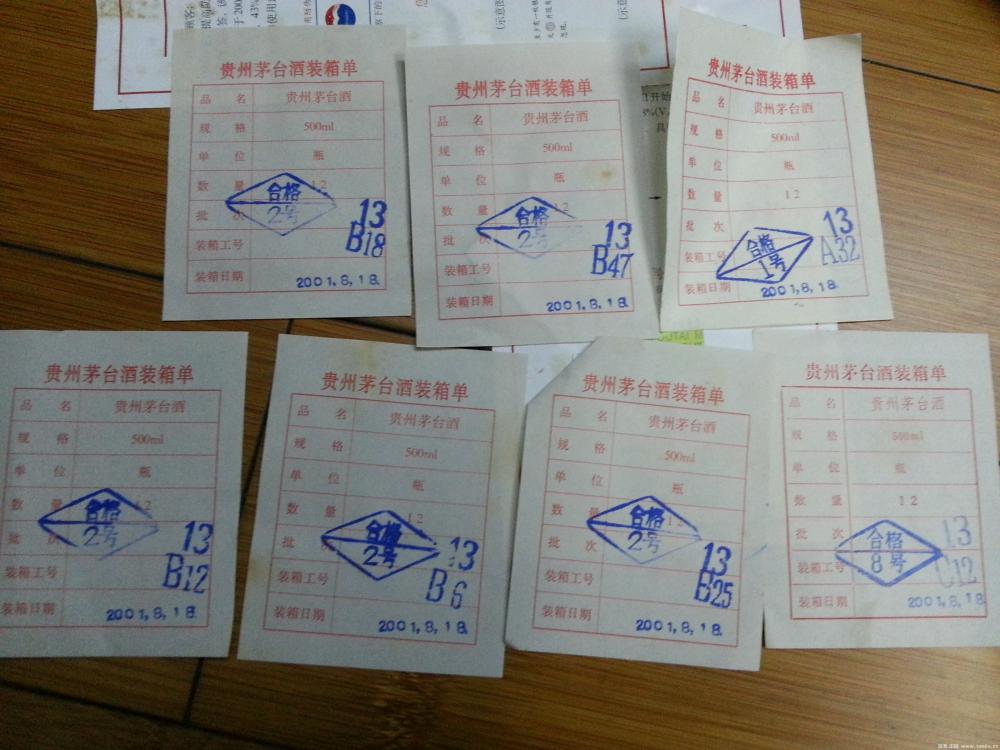 贵州茅台酒装箱单
品 名 贵州茅台酒
规 格 500ml
单 位 瓶
数 量 12
合格
2号
批 次 13
装箱工号 B18
装箱日期 2001.8.18.
贵州茅台酒装箱单
品 名 贵州茅台酒
规 格 500ml
单 位 瓶
数 量 12
合格
2号
批 次 13
装箱工号 B47
装箱日期 2001.8.18.
贵州茅台酒装箱单
品 名 贵州茅台酒
规 格 500ml
单 位 瓶
数 量 12
批 次 13
合格
1号
装箱工号 A32
装箱日期 2001.8.18.
贵州茅台酒装箱单
品 名 贵州茅台酒
规 格 500ml
单 位 瓶
数 量 12
合格
2号
批 次 13
装箱工号 B12
装箱日期 2001.8.18
贵州茅台酒装箱单
品 名 贵州茅台酒
规 格 500ml
单 位 瓶
数 量 12
合格
2号
批 次 13
装箱工号 B6
装箱日期 2001.8.18.
贵州茅台酒装箱单
品 名 贵州茅台酒
规 格 500ml
单 位 瓶
数 量 12
合格
2号
批 次 13
装箱工号 B25
装箱日期 2001.8.18.
贵州茅台酒装箱单
品 名 贵州茅台酒
规 格 500ml
单 位 瓶
批 量 12
批 次 13
合格
8号
装箱工号 C12
装箱日期 2001.8.18.
(示意图